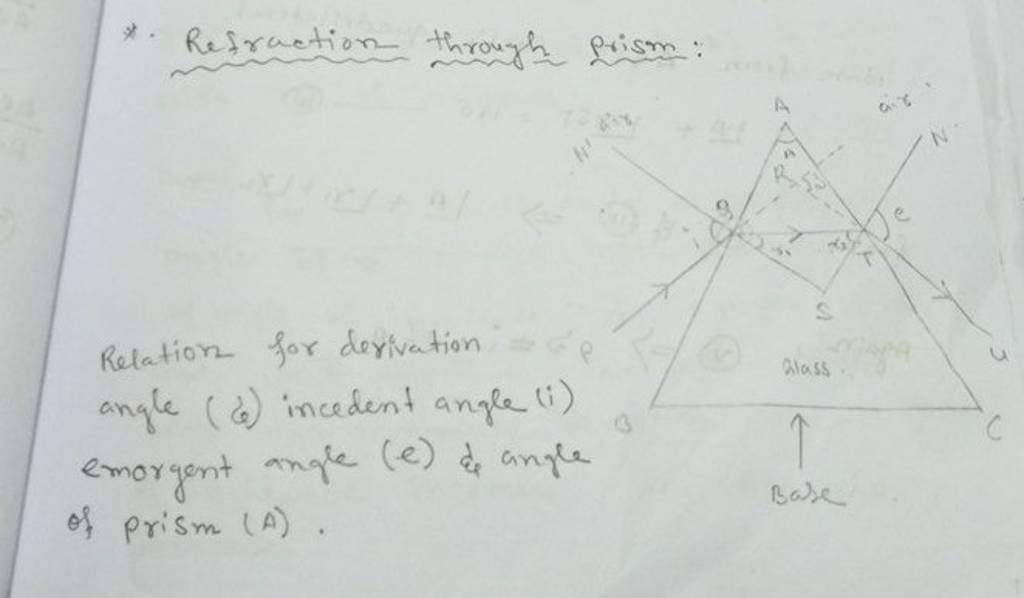 *. Refraction through prism:
A
air
N'
air
N
A
R
δ
Q
e
i
r₁
r₂
T
S
Relation for derivation
glass.
U
angle (δ) incedent angle (i)
B
C
emorgent angle (e) & angle
Base
of prism (A).